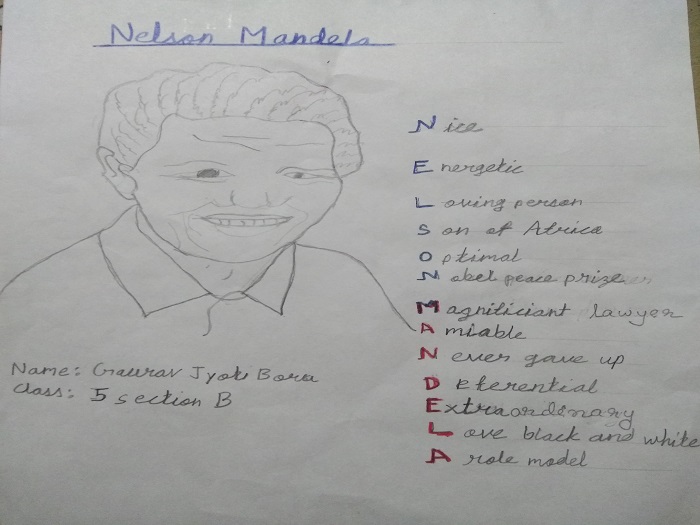 Nelson Mandela
Nice
Energetic
Loving person
Son of Africa
Optimal
Nobel peace prize
Magnificiant lawyer
Amiable
Never gave up
Deferential
Extraordinary
Love black and white
A role model
Name: Gaurav Jyoti Bora
Class: 5 section B